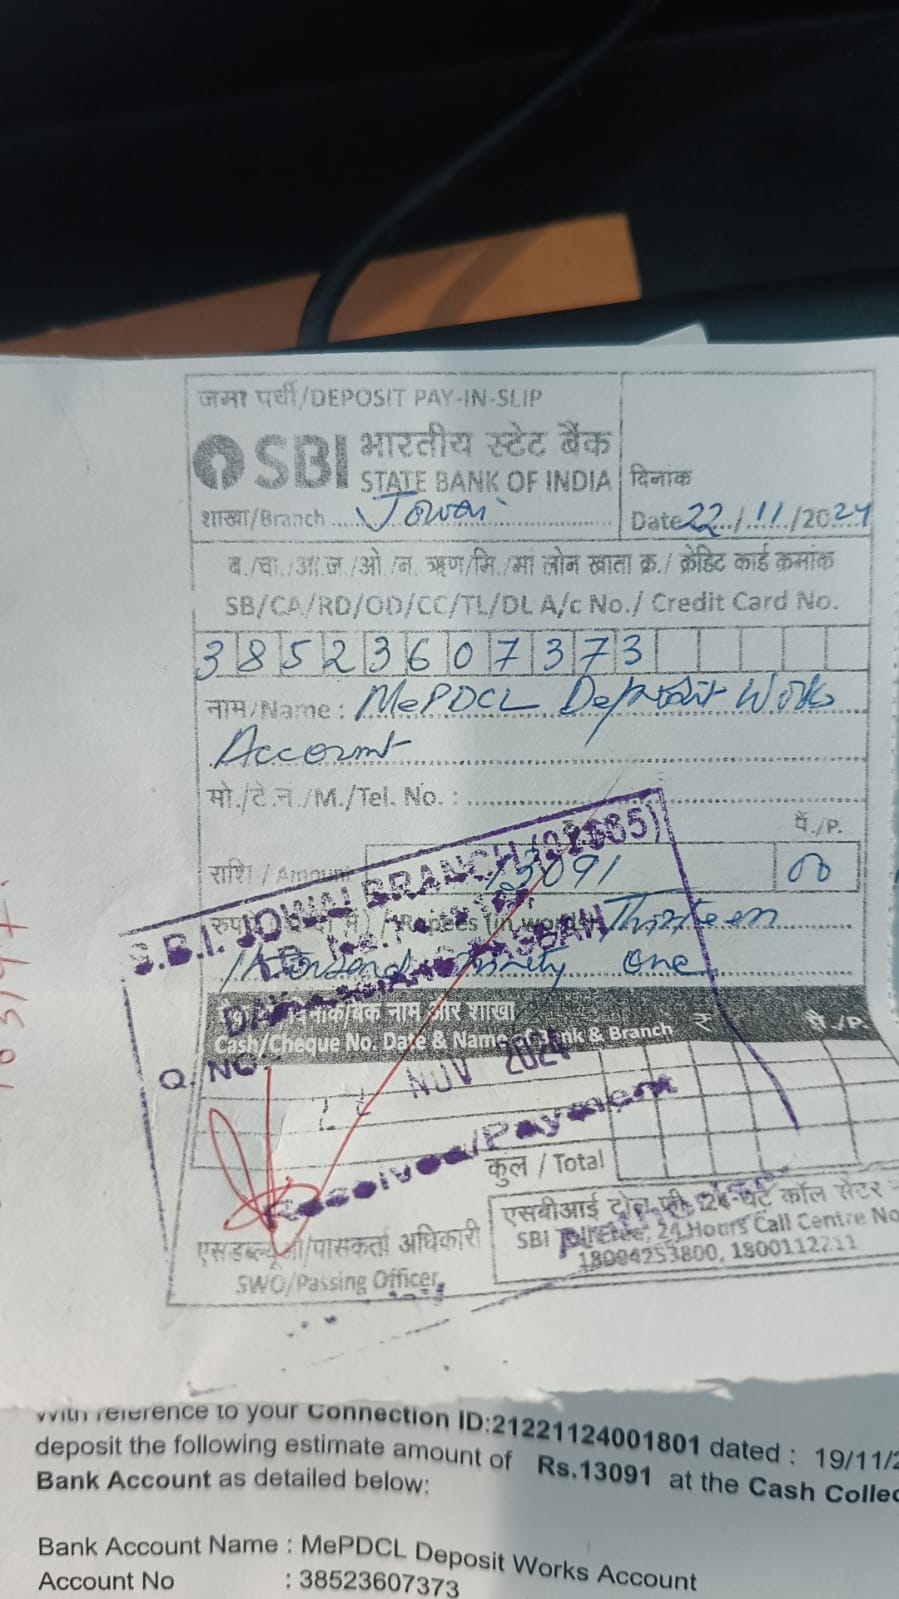 जमा पर्ची/DEPOSIT PAY-IN-SLIP
SBI भारतीय स्टेट बैंक
STATE BANK OF INDIA
शाखा/Branch ..... Jowai
दिनांक
Date 22/11/2024
ब./चा./आ./ज./ओ./न. ऋण/मि./मा लोन खाता क्र./ क्रेडिट कार्ड क्रमांक
SB/CA/RD/OD/CC/TL/DL A/c No./ Credit Card No.
38523607373
नाम/Name : MePDCL Deposit Works
Account
मो./टे.न./M./Tel. No. :
पै./P.
राशि / Amount 13091 00
Rupees (in words) Thirteen
Thousand Ninety One
S.B.I. JOWAI BRANCH
नाम और शाखा
Cash/Cheque No. Date & Name of Bank & Branch ₹ पै./P.
Q. NO
NOV 2024
Received/Payment
कुल / Total
एसडब्ल्यूओ/पासकर्ता अधिकारी
SWO/Passing Officer
एसबीआई टोल फ्री, 24 घंटे कॉल सेंटर
SBI Toll Free, 24 Hours Call Centre No
1800112211
With reference to your Connection ID:21221124001801 dated : 19/11/2
deposit the following estimate amount of Rs.13091 at the Cash Collec
Bank Account as detailed below:
Bank Account Name : MePDCL Deposit Works Account
Account No : 38523607373